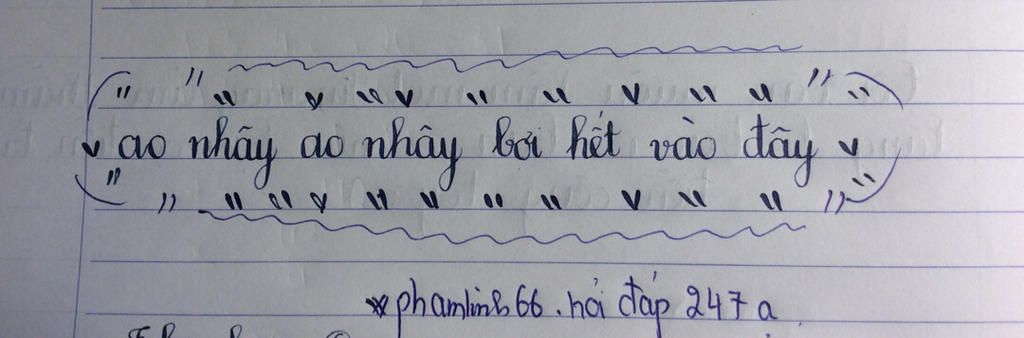 ao nhãy ao nhây bơi hết vào đãy
phamlinh66. hỏi đáp 247 a